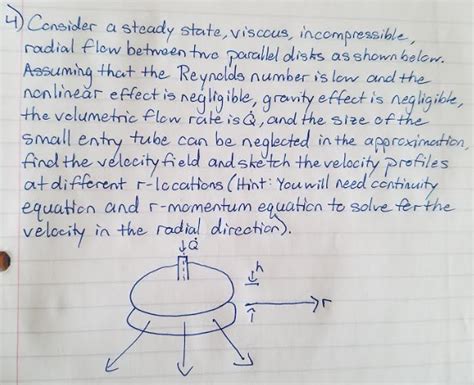 4) Consider a steady state, viscous, incompressible,
radial flow between two parallel disks as shown below.
Assuming that the Reynolds number is low and the
nonlinear effect is negligible, gravity effect is negligible,
the volumetric flow rate is Q̇, and the size of the
small entry tube can be neglected in the approximation,
find the velocity field and sketch the velocity profiles
at different r-locations (Hint: You will need continuity
equation and r-momentum equation to solve for the
velocity in the radial direction).
↓Q̇
h
r